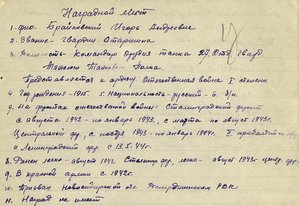 Наградной Лист
1. фио. Брайковский Игорь Андреевич
2. Звание - Гвардии Старшина
3. Должность - командир орудия танка 27 Отд. Гвард.
Тяжелого Танкового Полка.
Представляется к ордену Отечественная война I степени
4. Год рождения - 1915. 5. Национальность - русский - 6. б/п.
7. На фронтах отечественной войны: Сталинградский фронт
с августа 1942 - по январь 1943, с марта по август 1943г.
Центральный фр, с ноября 1943 - по январь 1944г. II прибалтийский фр
и Ленинградский фр. с 13.5.44г.
8. Ранен легко - август 1942 Сталинг фр, легко - август 1943г. центр. фр.
9. В красной армии с 1942г.
10. Призван Новосибирской обл. РВК
11. Наград не имеет